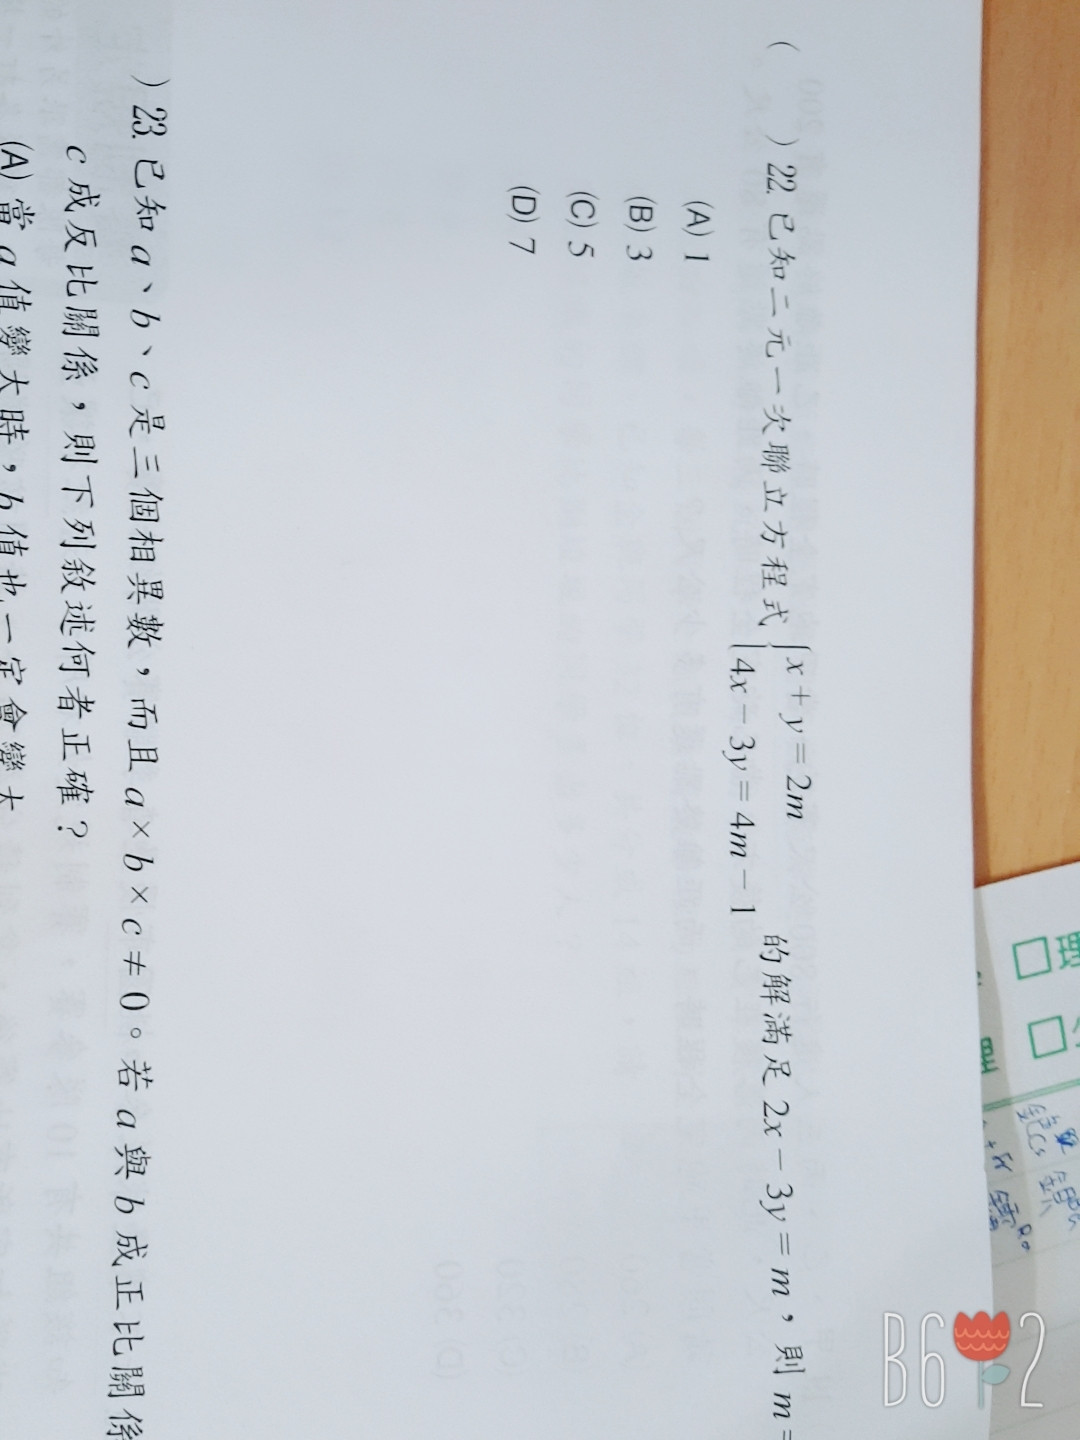 (　　) 22. 已知二元一次聯立方程式 { x + y = 2m
4x − 3y = 4m − 1 的解滿足 2x − 3y = m，則 m =
(A) 1
(B) 3
(C) 5
(D) 7
) 23. 已知 a、b、c 是三個相異數，而且 a × b × c ≠ 0。若 a 與 b 成正比關係
c 成反比關係，則下列敘述何者正確？
(A) 當 a 值變大時，b 值也一定會變大
理
B612